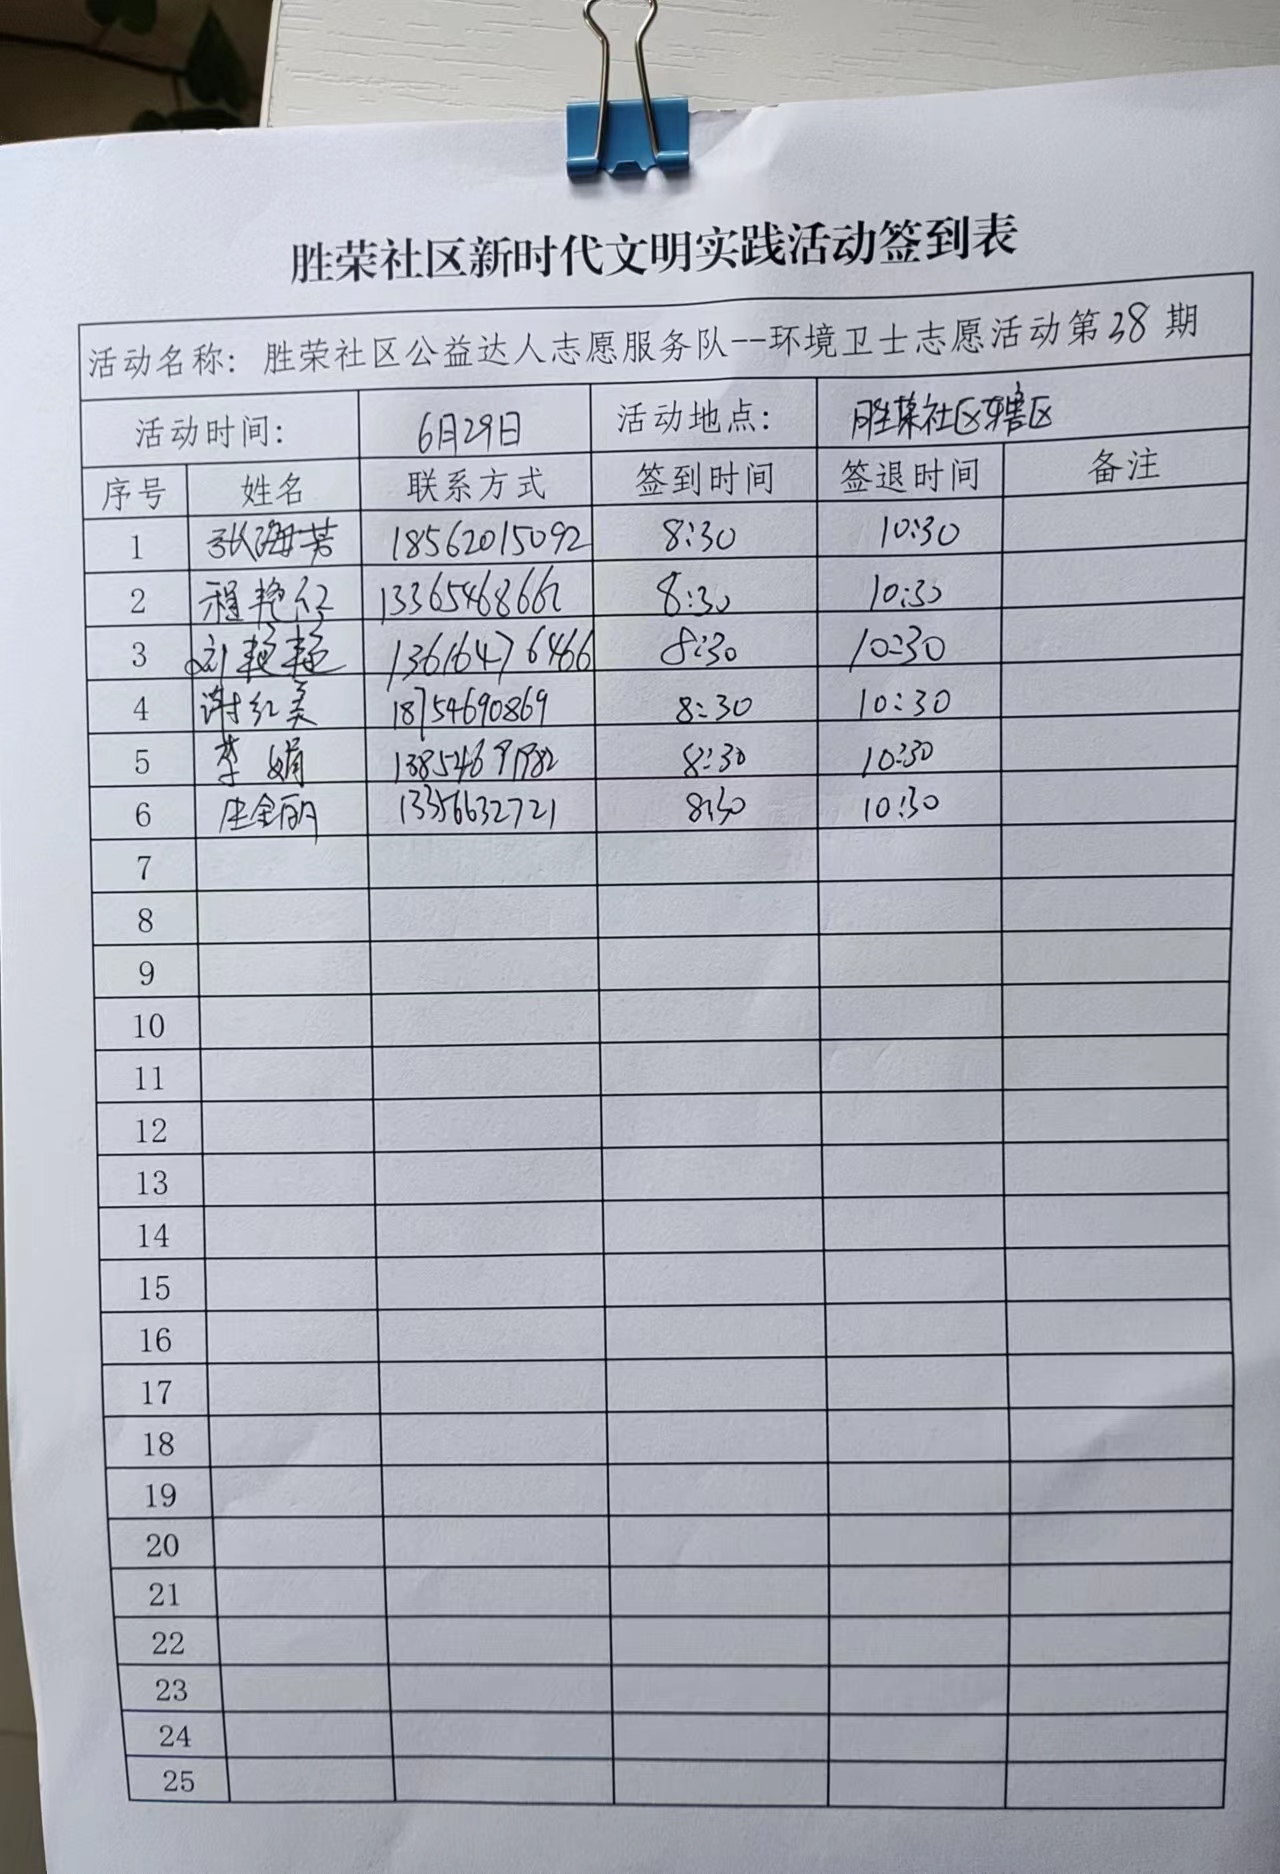 胜荣社区新时代文明实践活动签到表
活动名称: 胜荣社区公益达人志愿服务队--环境卫士志愿活动第38期
活动时间: 6月29日 活动地点: 胜荣社区辖区
序号 姓名 联系方式 签到时间 签退时间 备注
1 张海芳 18562015092 8:30 10:30
2 程艳红 8:30 10:30
3 刘艳艳 13616476466 8:30 10:30
4 谢红美 18754690869 8:30 10:30
5 李娟 8:30 10:30
6 庄金丽 13356632721 8:30 10:30
7
8
9
10
11
12
13
14
15
16
17
18
19
20
21
22
23
24
25